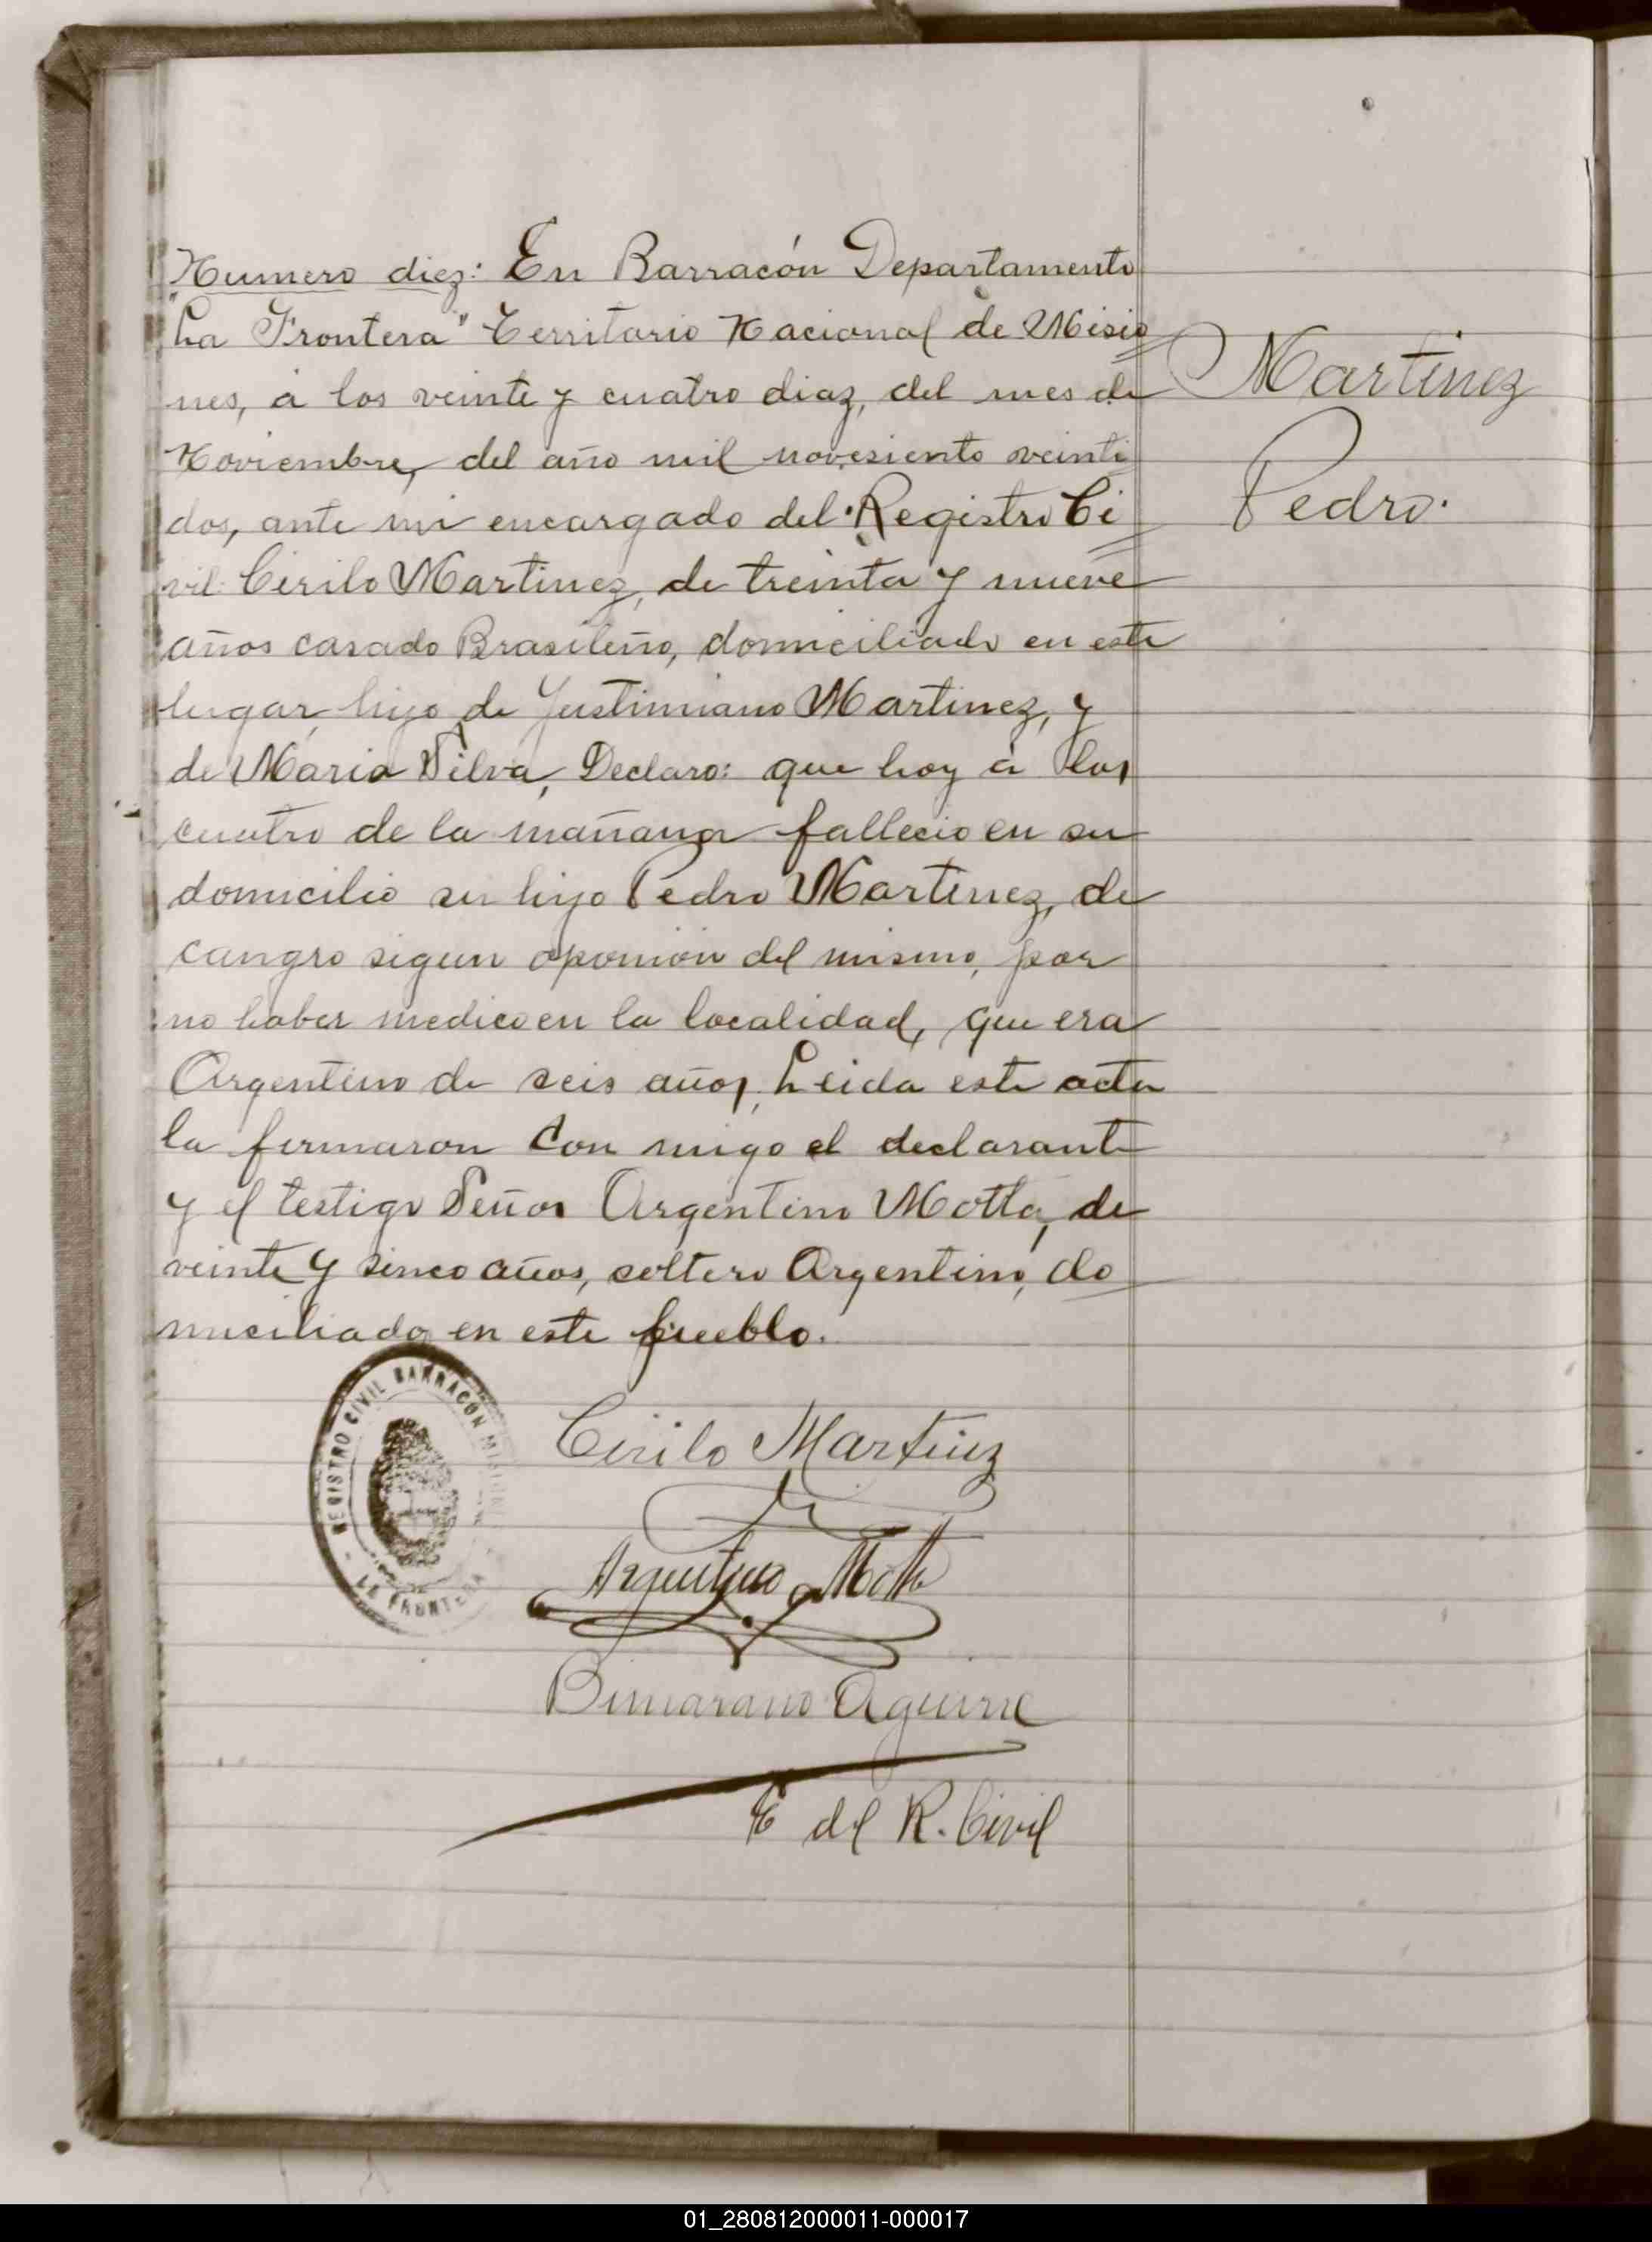 Numero diez: En Barracón Departamento
"La Frontera" Territorio Nacional de Misio
nes, á los veinte y cuatro diaz, del mes de
Noviembre, del año mil novesiento veinti
dos, ante mi encargado del Registro Ci
vil: Cirilo Martinez, de treinta y nueve
años casado Brasileño, domiciliado en este
lugar, hijo de Justiniano Martinez, y
de Maria Silva, Declaro: que hoy á las
cuatro de la mañana fallecio en su
domicilio su hijo Pedro Martinez, de
cangro sigun oponion del mismo, por
no haber medico en la localidad, que era
Argentino de seis años, Leida este acta
la firmaron con migo el declarante
y el testigo Señor Argentino Motta, de
veinte y sinco años, soltero Argentino, do
miciliado en este pueblo.
Martinez
Pedro.
REGISTRO CIVIL BARRACON MISIONES
LA FRONTERA
Cirilo Martinez
Argentino Motta
Aguirre
E del R. Civil
01_280812000011-000017